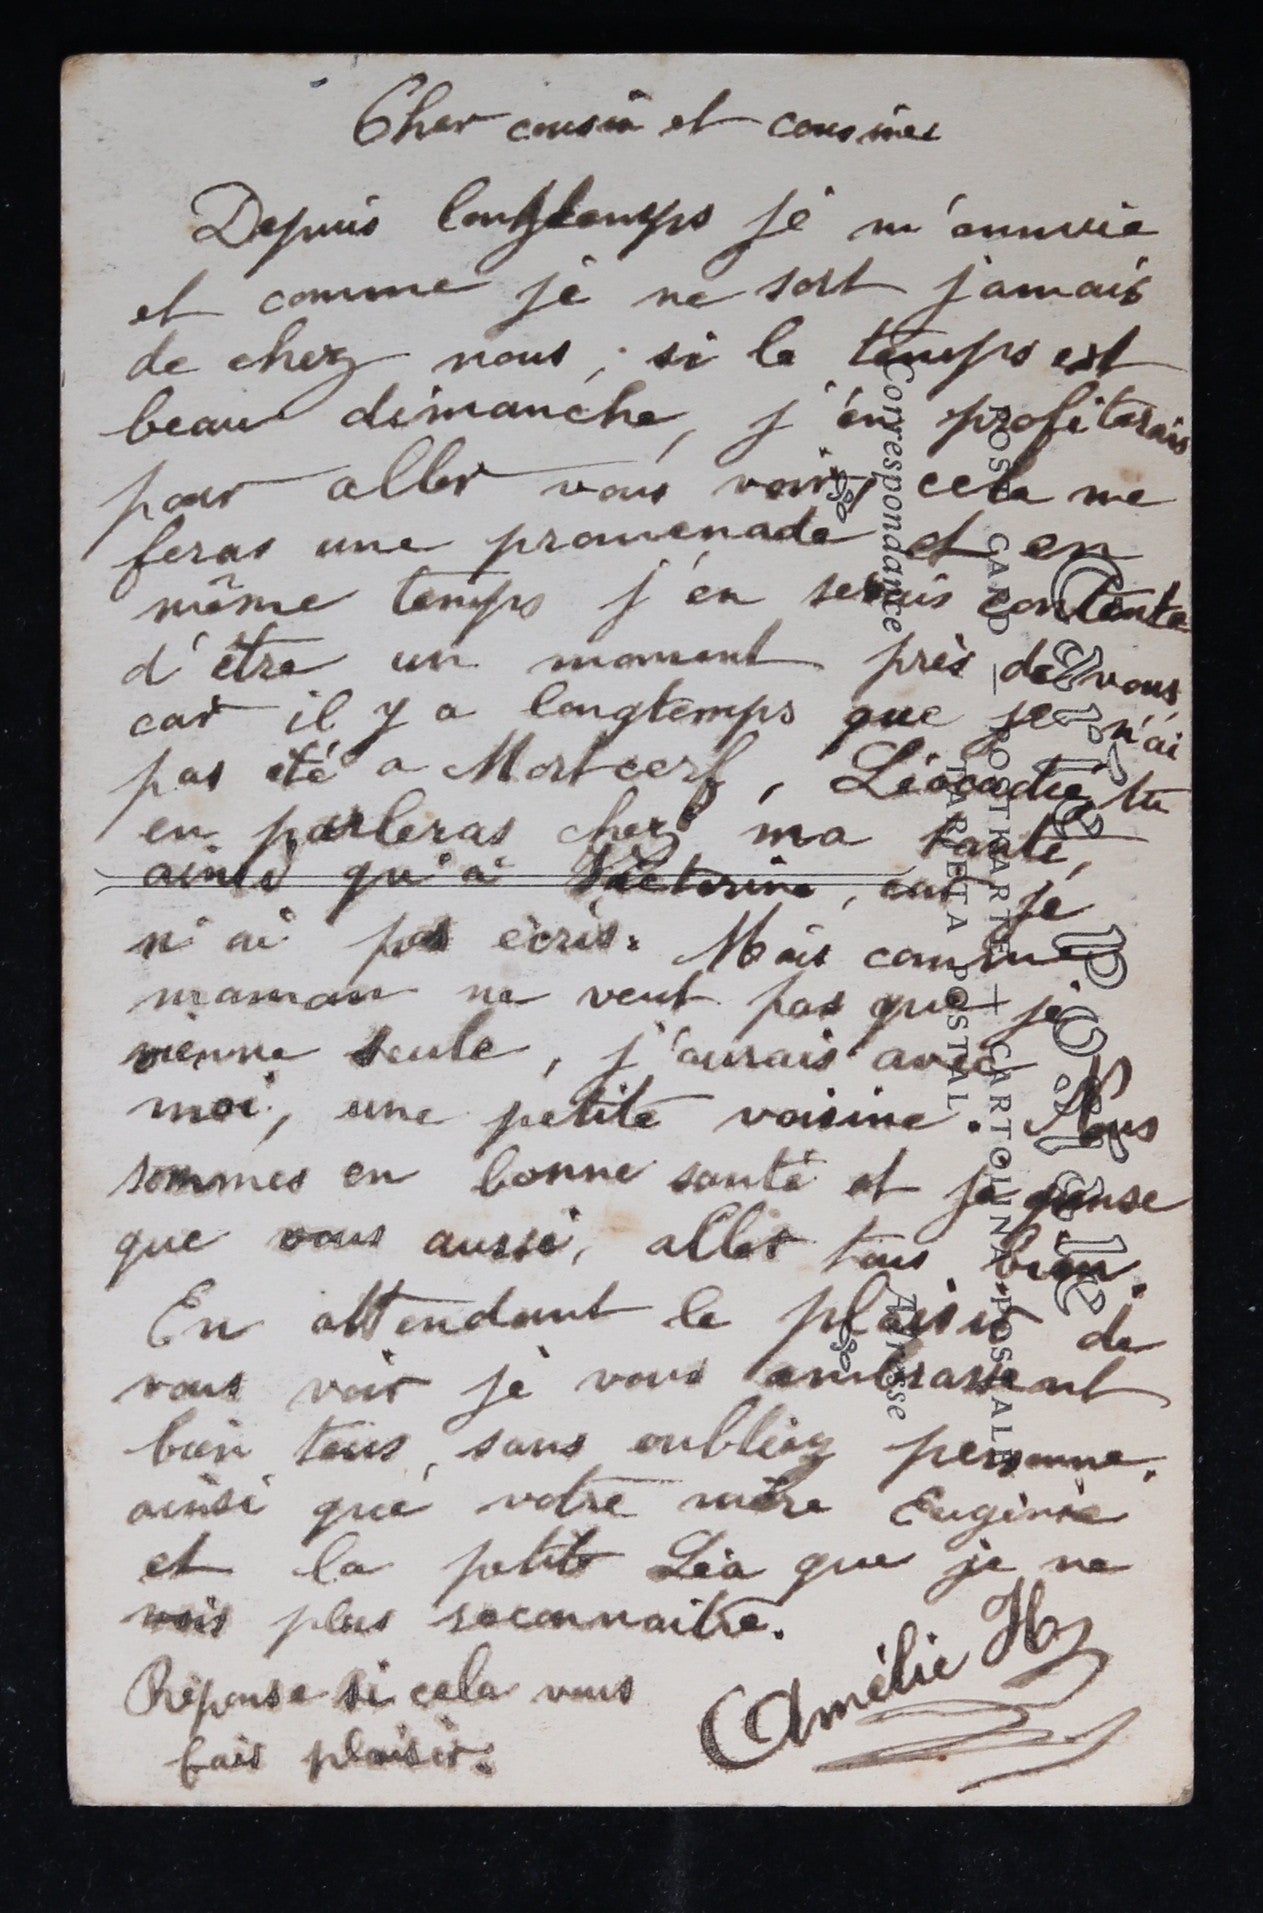 Cher cousin et cousines
Depuis longtemps je m'ennuie
et comme je ne sort jamais
de chez nous, si le temps est
beau dimanche, j'en profiterais
pour aller vous voir, cela me
feras une promenade et en
même temps j'en serais contente
d'être un moment près de vous
car il y a longtemps que je n'ai
pas été a Mortcerf, Léocadie, tu
en parleras chez ma tante,
ainsi qu'à Victorine, car je
n'ai pas écris. Mais comme
maman ne veut pas que je
vienne seule, j'aurais avec
moi, une petite voisine. Nous
sommes en bonne santé et je pense
que vous aussi, aller tous bien.
En attendant le plaisir de
vous voir je vous embrassent
bien tous, sans oubliez personne,
ainsi que votre mère Eugénie
et la petite Léa que je ne
vais plus reconnaitre.
Réponse si cela vous
fais plaisir.
Amélie H
Carte Postale
POST CARD — POSTKARTE + CARTOLINA POSTALE
TARJETA POSTAL
Correspondance
Adresse